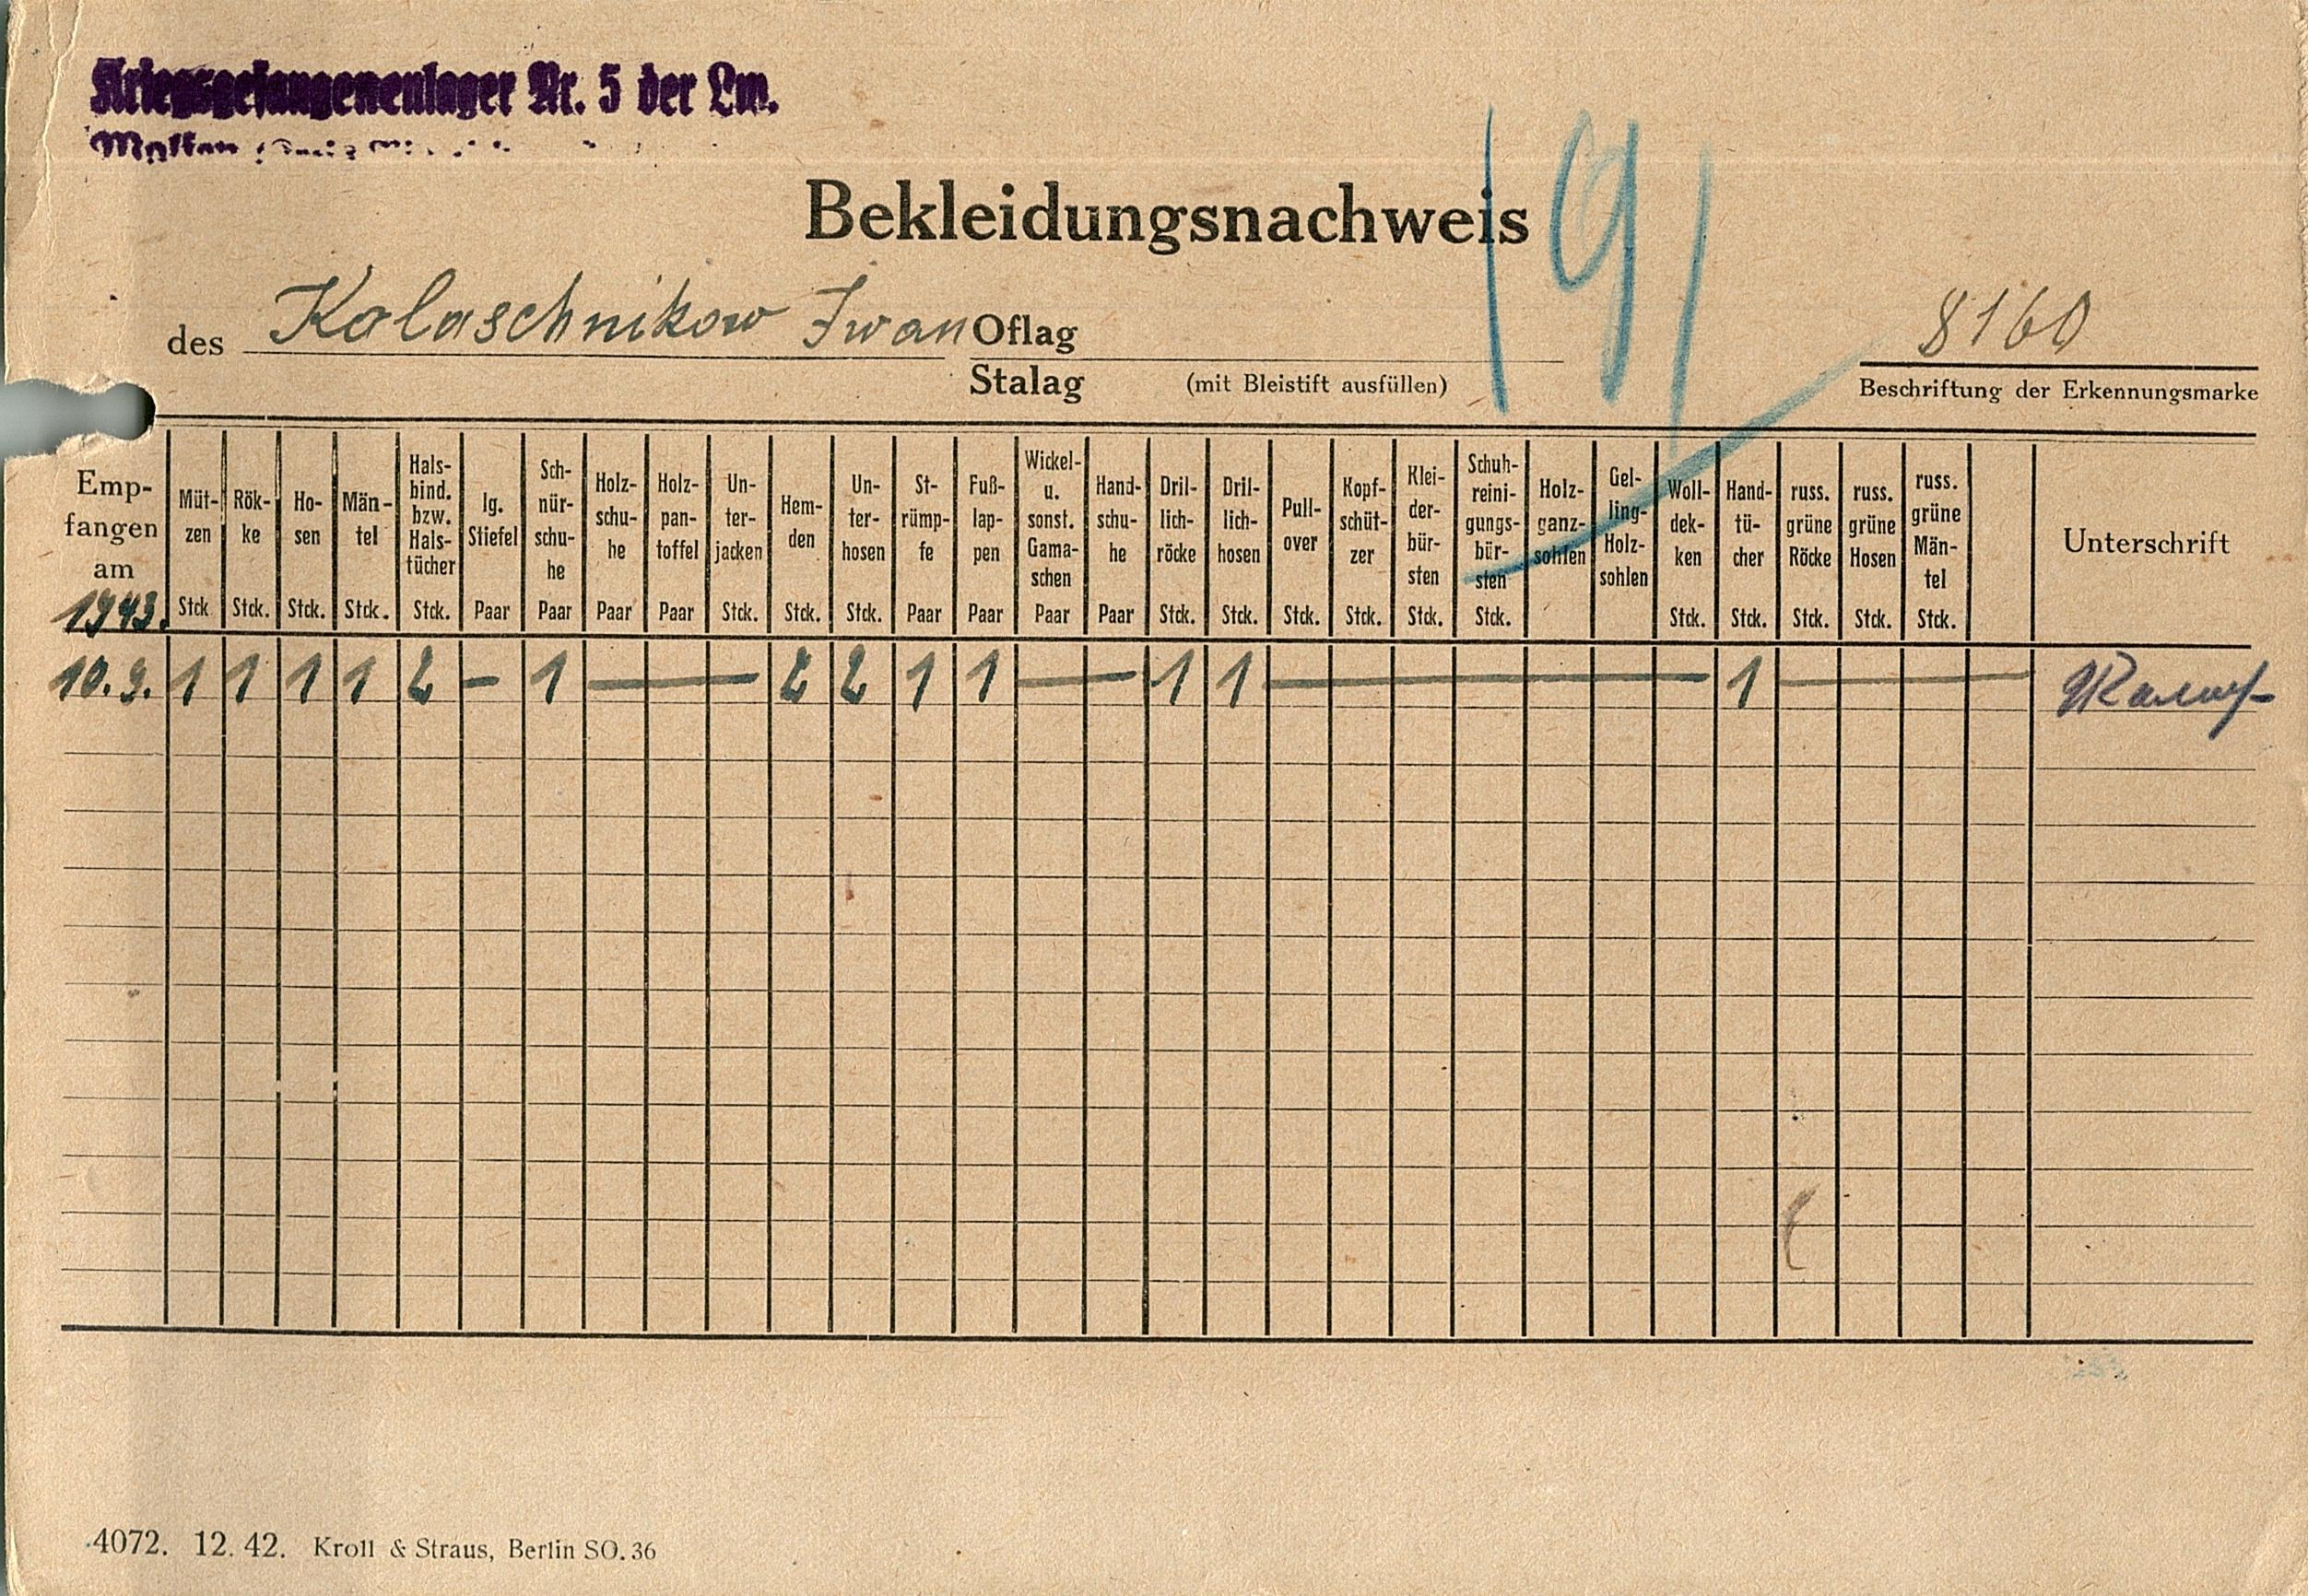 Kriegsgefangenenlager Nr. 5 der Lw.
Bekleidungsnachweis
(9)
des Kolaschnikow Iwan Oflag
Stalag (mit Bleistift ausfüllen)
8160
Beschriftung der Erkennungsmarke
Emp-fangen am 1943. | Müt-zen Stck | Rök-ke Stck. | Ho-sen Stck. | Män-tel Stck. | Hals-bind. bzw. Hals-tücher Stck. | lg. Stiefel Paar | Sch-nür-schu-he Paar | Holz-schu-he Paar | Holz-pan-toffel Paar | Un-ter-jacken Stck. | Hem-den Stck. | Un-ter-hosen Stck. | St-rümp-fe Paar | Fuß-lap-pen Paar | Wickel- u. sonst. Gama-schen Paar | Hand-schu-he Paar | Dril-lich-röcke Stck. | Dril-lich-hosen Stck. | Pull-over Stck. | Kopf-schüt-zer Stck. | Klei-der-bür-sten Stck. | Schuh-reini-gungs-bür-sten Stck. | Holz-ganz-sohlen | Gel-ling-Holz-sohlen | Woll-dek-ken Stck. | Hand-tü-cher Stck. | russ. grüne Röcke Stck. | russ. grüne Hosen Stck. | russ. grüne Män-tel Stck. | Unterschrift
10.9. 1 1 1 1 2 – 1 — 2 2 1 1 — 1 1 — 1 —
4072. 12. 42. Kroll & Straus, Berlin SO. 36